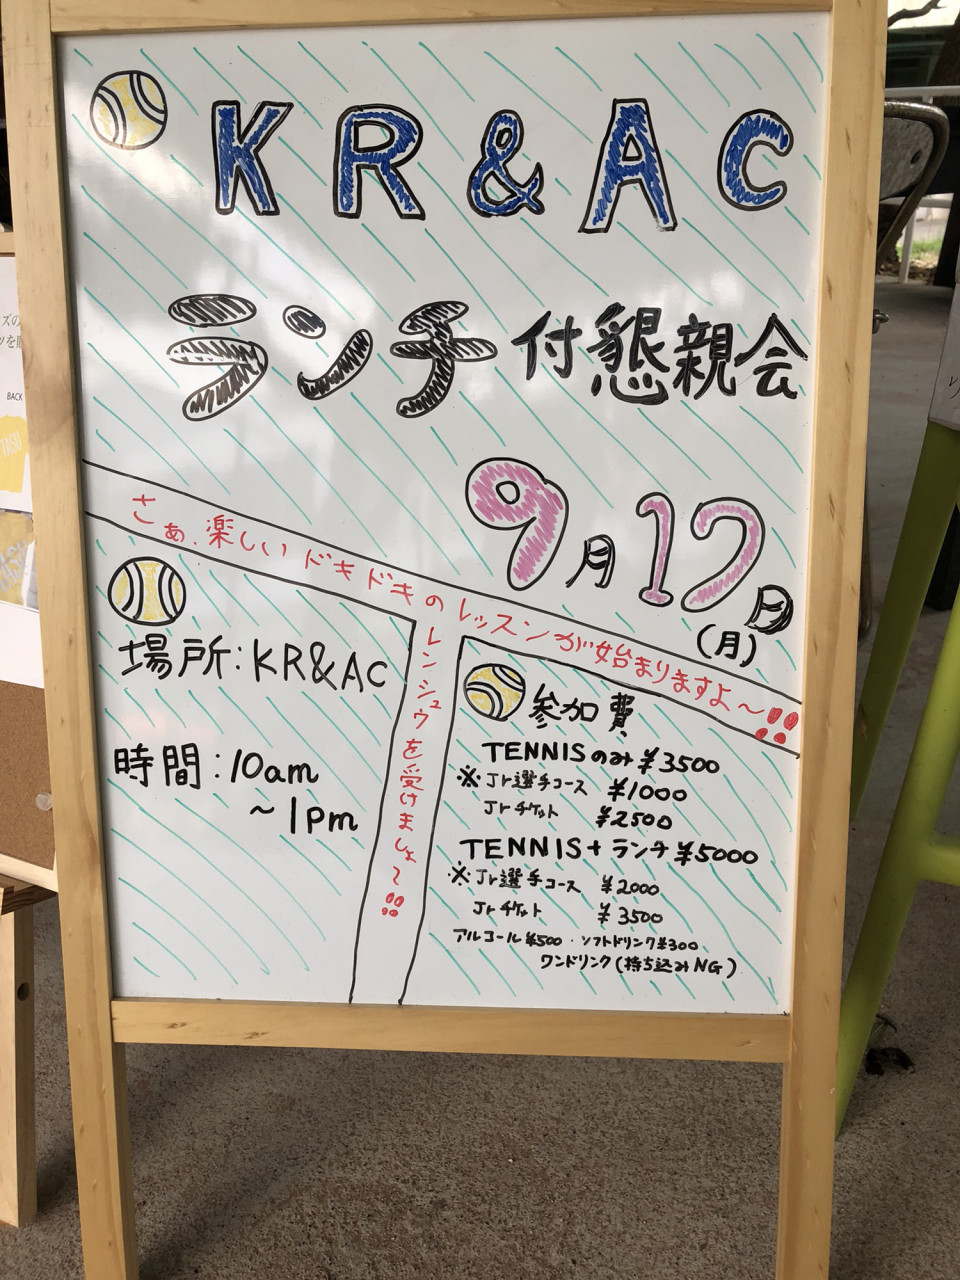 KR&AC
ランチ付懇親会
9月17日
(月)
さぁ、楽しいドキドキのレッスンが始まりますよ〜!!
レンシュウを受けましょ〜!!
場所:KR&AC
時間:10am
〜1pm
参加費
TENNISのみ ¥3500
※Jr選手コース ¥1000
Jrチケット ¥2500
TENNIS+ランチ ¥5000
※Jr選手コース ¥2000
Jrチケット ¥3500
アルコール¥500・ソフトドリンク¥300
ワンドリンク(持ち込みNG)
BACK
TASU